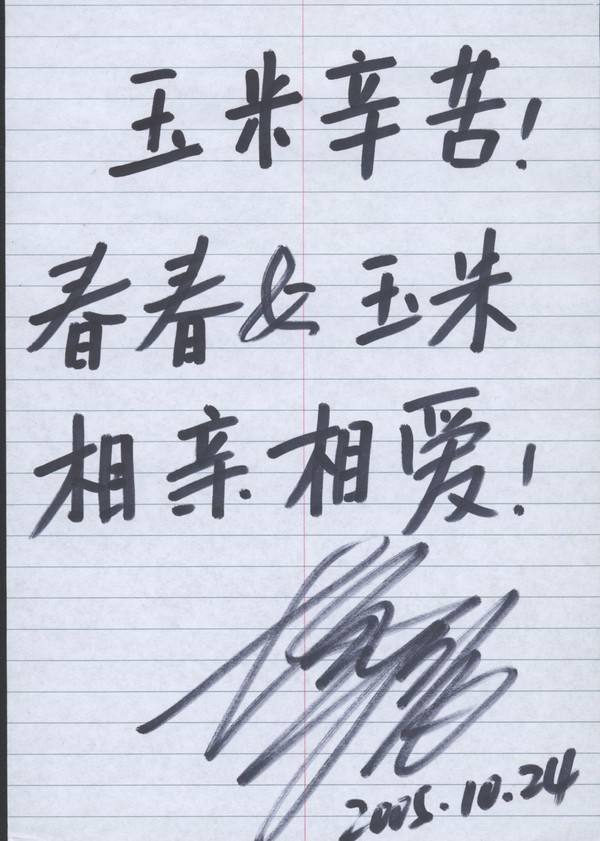 玉米辛苦!
春春&玉米
相亲相爱!
2005.10.24